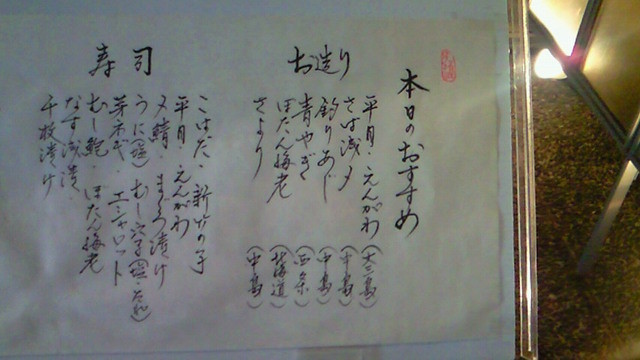 本日のおすすめ
お造り
平目・えんがわ (大三島)
さば浅〆 (中島)
釣りあじ (中島)
青やぎ (西条)
ぼたん海老 (北海道)
さより (中島)
寿司
こはだ・新竹の子
平目・えんがわ
〆鯖・まぐろ漬け
うに(塩) むし穴子(塩・
芽ねぎ・エシャロット
むし鮑・ぼたん海老
なす浅漬
千枚漬け